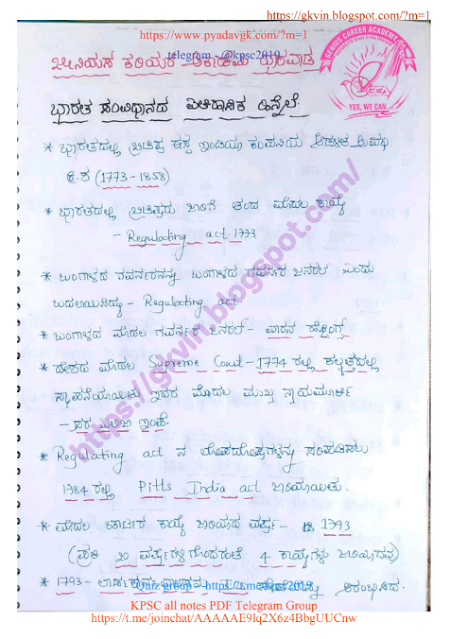 https://gkvin.blogspot.com/?m=1
https://www.pyadavgk.com/?m=1
telegram - @kpsc2019
ಜೀನಿಯಸ್ ಕರಿಯರ್ ಅಕಾಡೆಮಿ ಧಾರವಾಡ
GENIUS CAREER ACADEMY
YES, WE CAN
ಭಾರತ ಸಂವಿಧಾನದ ಐತಿಹಾಸಿಕ ಹಿನ್ನೆಲೆ:
* ಭಾರತದಲ್ಲಿ ಬ್ರಿಟಿಷ ಈಸ್ಟ ಇಂಡಿಯಾ ಕಂಪನಿಯ ಆಡಳಿತ ಅವಧಿ
ಕ್ರಿ.ಶ (1773-1858)
* ಭಾರತದಲ್ಲಿ ಬ್ರಿಟಿಷರು ಜಾರಿಗೆ ತಂದ ಮೊದಲ ಕಾಯ್ದೆ
- Regulating act 1773
* ಬಂಗಾಳದ ಗವರ್ನರನನ್ನು ಬಂಗಾಳದ ಗವರ್ನರ ಜನರಲ್ ಎಂದು
ಬದಲಾಯಿಸಿದ್ದು - Regulating act
* ಬಂಗಾಳದ ಮೊದಲ ಗವರ್ನರ ಜನರಲ್ - ವಾರನ ಹೇಸ್ಟಿಂಗ್ಸ್
* ದೇಶದ ಮೊದಲ Supreme Court - 1774 ರಲ್ಲಿ ಕಲ್ಕತ್ತದಲ್ಲಿ
ಸ್ಥಾಪನೆಯಾಯಿತು ಇದರ ಮೊದಲ ಮುಖ್ಯ ನ್ಯಾಯಮೂರ್ತಿ
- ಸರ ಎಲಿಜಾ ಇಂಫೆ.
* Regulating act ನ ಲೋಪದೋಷಗಳನ್ನು ಸರಿಪಡಿಸಲು
1784 ರಲ್ಲಿ Pitts India act ಜಾರಿಯಾಯಿತು.
* ಮೊದಲ ಚಾರ್ಟರ ಕಾಯ್ದೆ ಜಾರಿಯಾದ ವರ್ಷ - 1793
(ಪ್ರತಿ 20 ವರ್ಷಗಳಿಗೊಂದರಂತೆ 4 ಕಾಯ್ದೆಗಳು ಜಾರಿಯಾದವು)
* 1793 - ಲಾರ್ಡ ಆರಂಭಿಸಿದ.
https://gkvin.blogspot.com/
KPSC all notes PDF Telegram Group
https://t.me/joinchat/AAAAAE9lq2X6z4BbgUUCnw